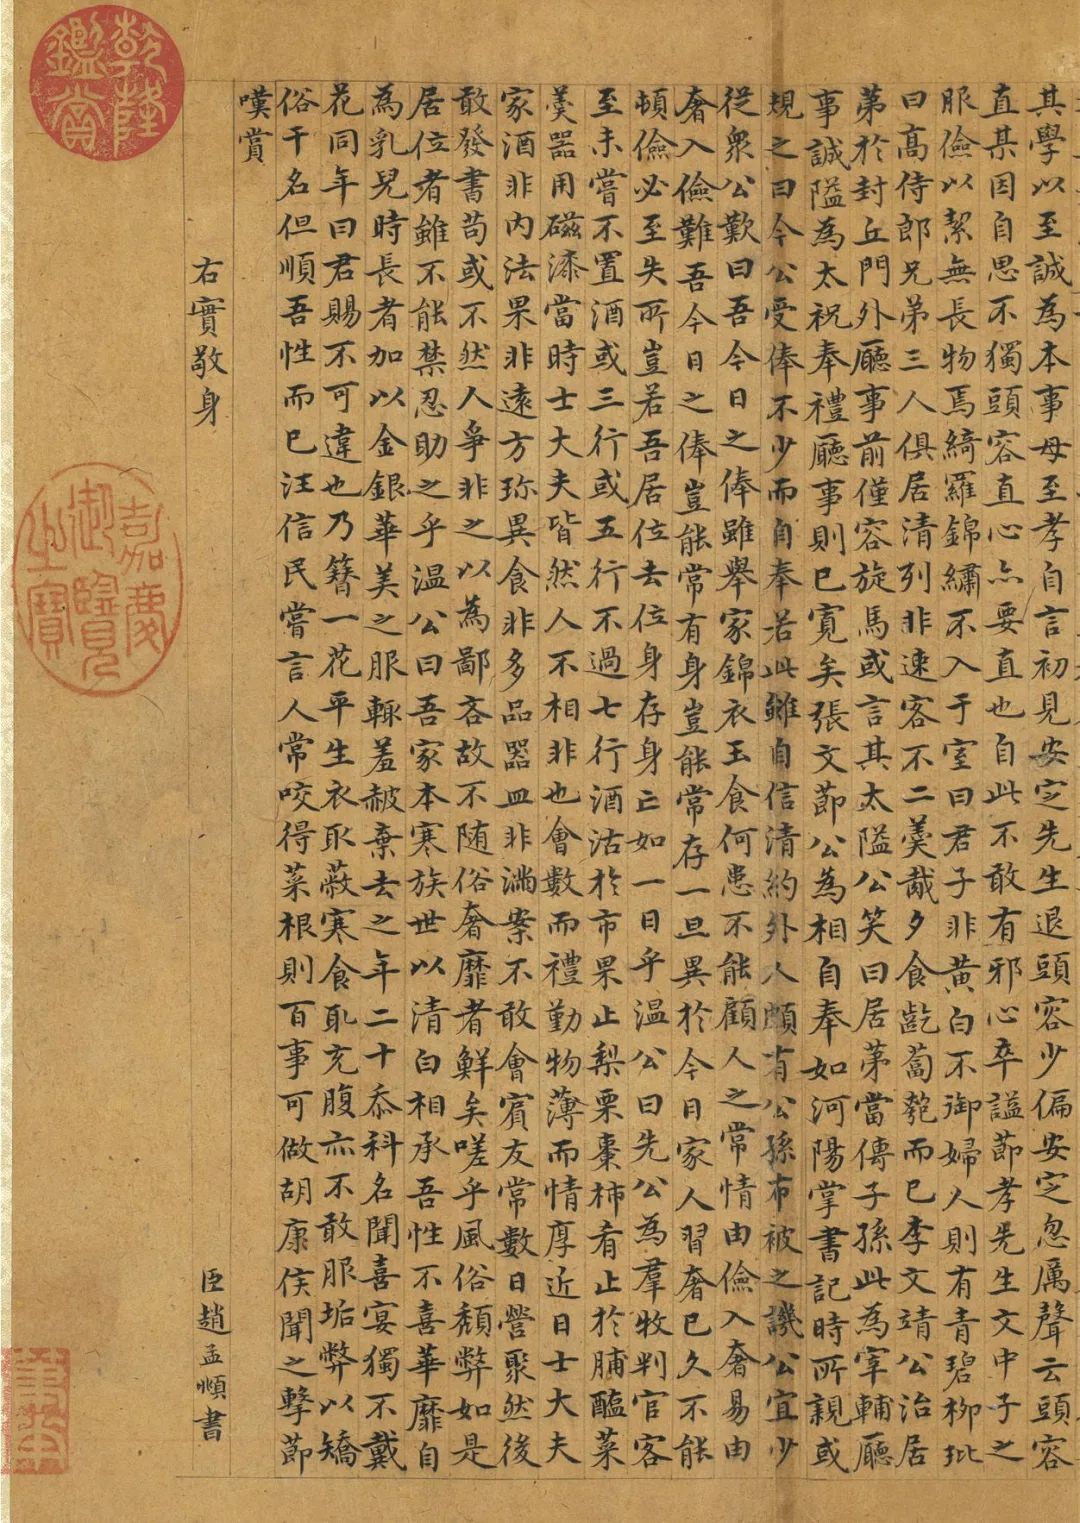 其學以至誠為本事母至孝自言初見安定先生退頭容少偏安定忽厲聲云頭容
直某因自思不獨頭容直心亦要直也自此不敢有邪心卒謚節孝先生文中子之
服儉以絜無長物焉綺羅錦繡不入于室曰君子非黃白不御婦人則有青碧柳玭
曰高侍郎兄弟三人俱居清列非速客不二羹胾夕食齕蔔匏而已李文靖公治居
第於封丘門外廳事前僅容旋馬或言其太隘公笑曰居第當傳子孫此為宰輔廳
事誠隘為太祝奉禮廳事則已寬矣張文節公為相自奉如河陽掌書記時所親或
規之曰今公受俸不少而自奉若此雖自信清約外人頗有公孫布被之譏公宜少
從衆公歎曰吾今日之俸雖舉家錦衣玉食何患不能顧人之常情由儉入奢易由
奢入儉難吾今日之俸豈能常有身豈能常存一旦異於今日家人習奢已久不能
頓儉必至失所豈若吾居位去位身存身亡如一日乎溫公曰先公為羣牧判官客
至未嘗不置酒或三行或五行不過七行酒沽於市果止梨栗棗柿肴止於脯醢菜
羹器用磁漆當時士大夫皆然人不相非也會數而禮勤物薄而情厚近日士大夫
家酒非內法果非遠方珎異食非多品器皿非滿案不敢會賓友常數日營聚然後
敢發書苟或不然人爭非之以為鄙吝故不隨俗奢靡者鮮矣嗟乎風俗頹弊如是
居位者雖不能禁忍助之乎溫公曰吾家本寒族世以清白相承吾性不喜華靡自
為乳兒時長者加以金銀華美之服輒羞赧棄去之年二十忝科名聞喜宴獨不戴
花同年曰君賜不可違也乃簪一花平生衣取蔽寒食取充腹亦不敢服垢弊以矯
俗干名但順吾性而已汪信民嘗言人常咬得菜根則百事可做胡康侯聞之擊節
嘆賞
右實敬身 臣趙孟頫書
乾隆鑑賞
嘉慶御覽之寶